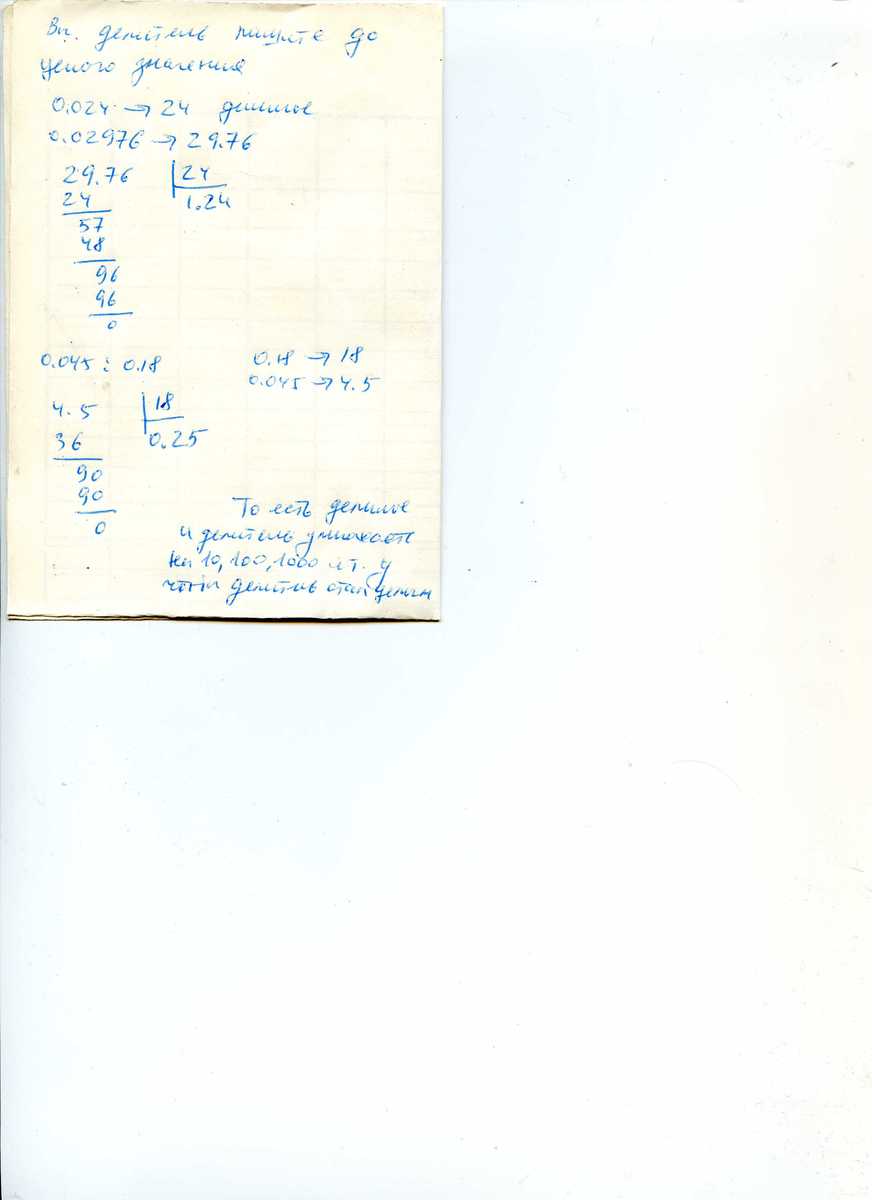 Вы делитель пишите до
целого значения
0.024 → 24 делимое
0.02976 → 29.76
29.76 24
24 1.24
57
48
96
96
0
0.045 : 0.18 0.18 → 18
0.045 → 4.5
4.5 18
36 0.25
90
90
0
То есть делимое
и делитель умножаете
на 10, 100, 1000 и т. д
чтобы делитель стал целым